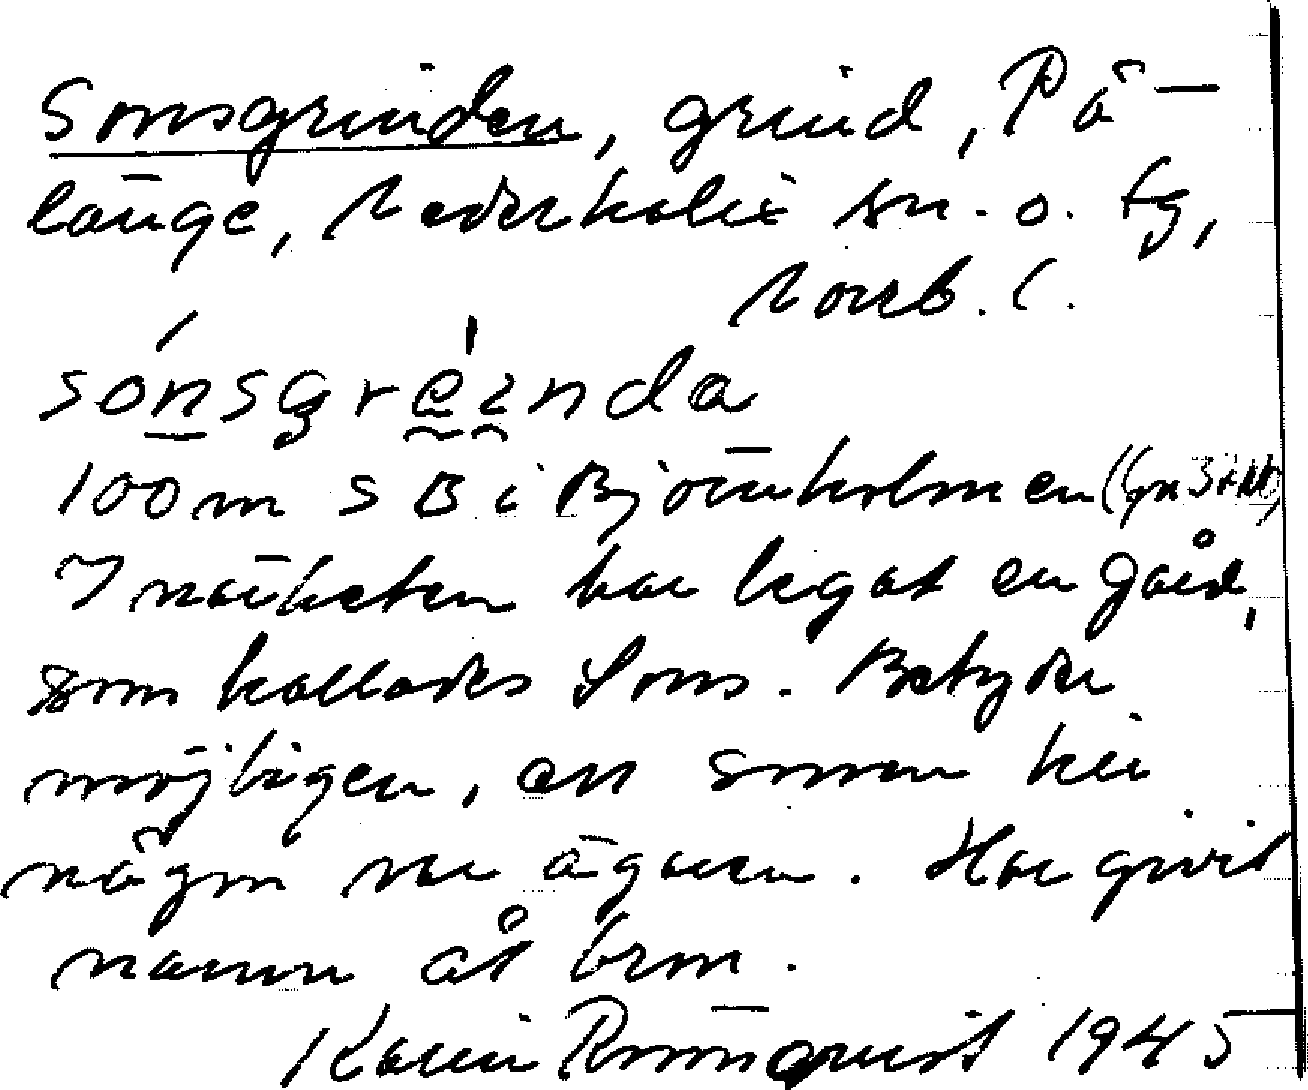 Sonsgrinden, grind, På-
länge, Nederkalix sn. o. tg,
Norrb. l.
sónsgreinda
100 m S B i Björnholmen
I närheten har legat en gård,
som kallades Sons. Betyder
möjligen, att sonen till
någon var ägaren. Har givit
namn åt brm.
Karin Rönnqvist 1945